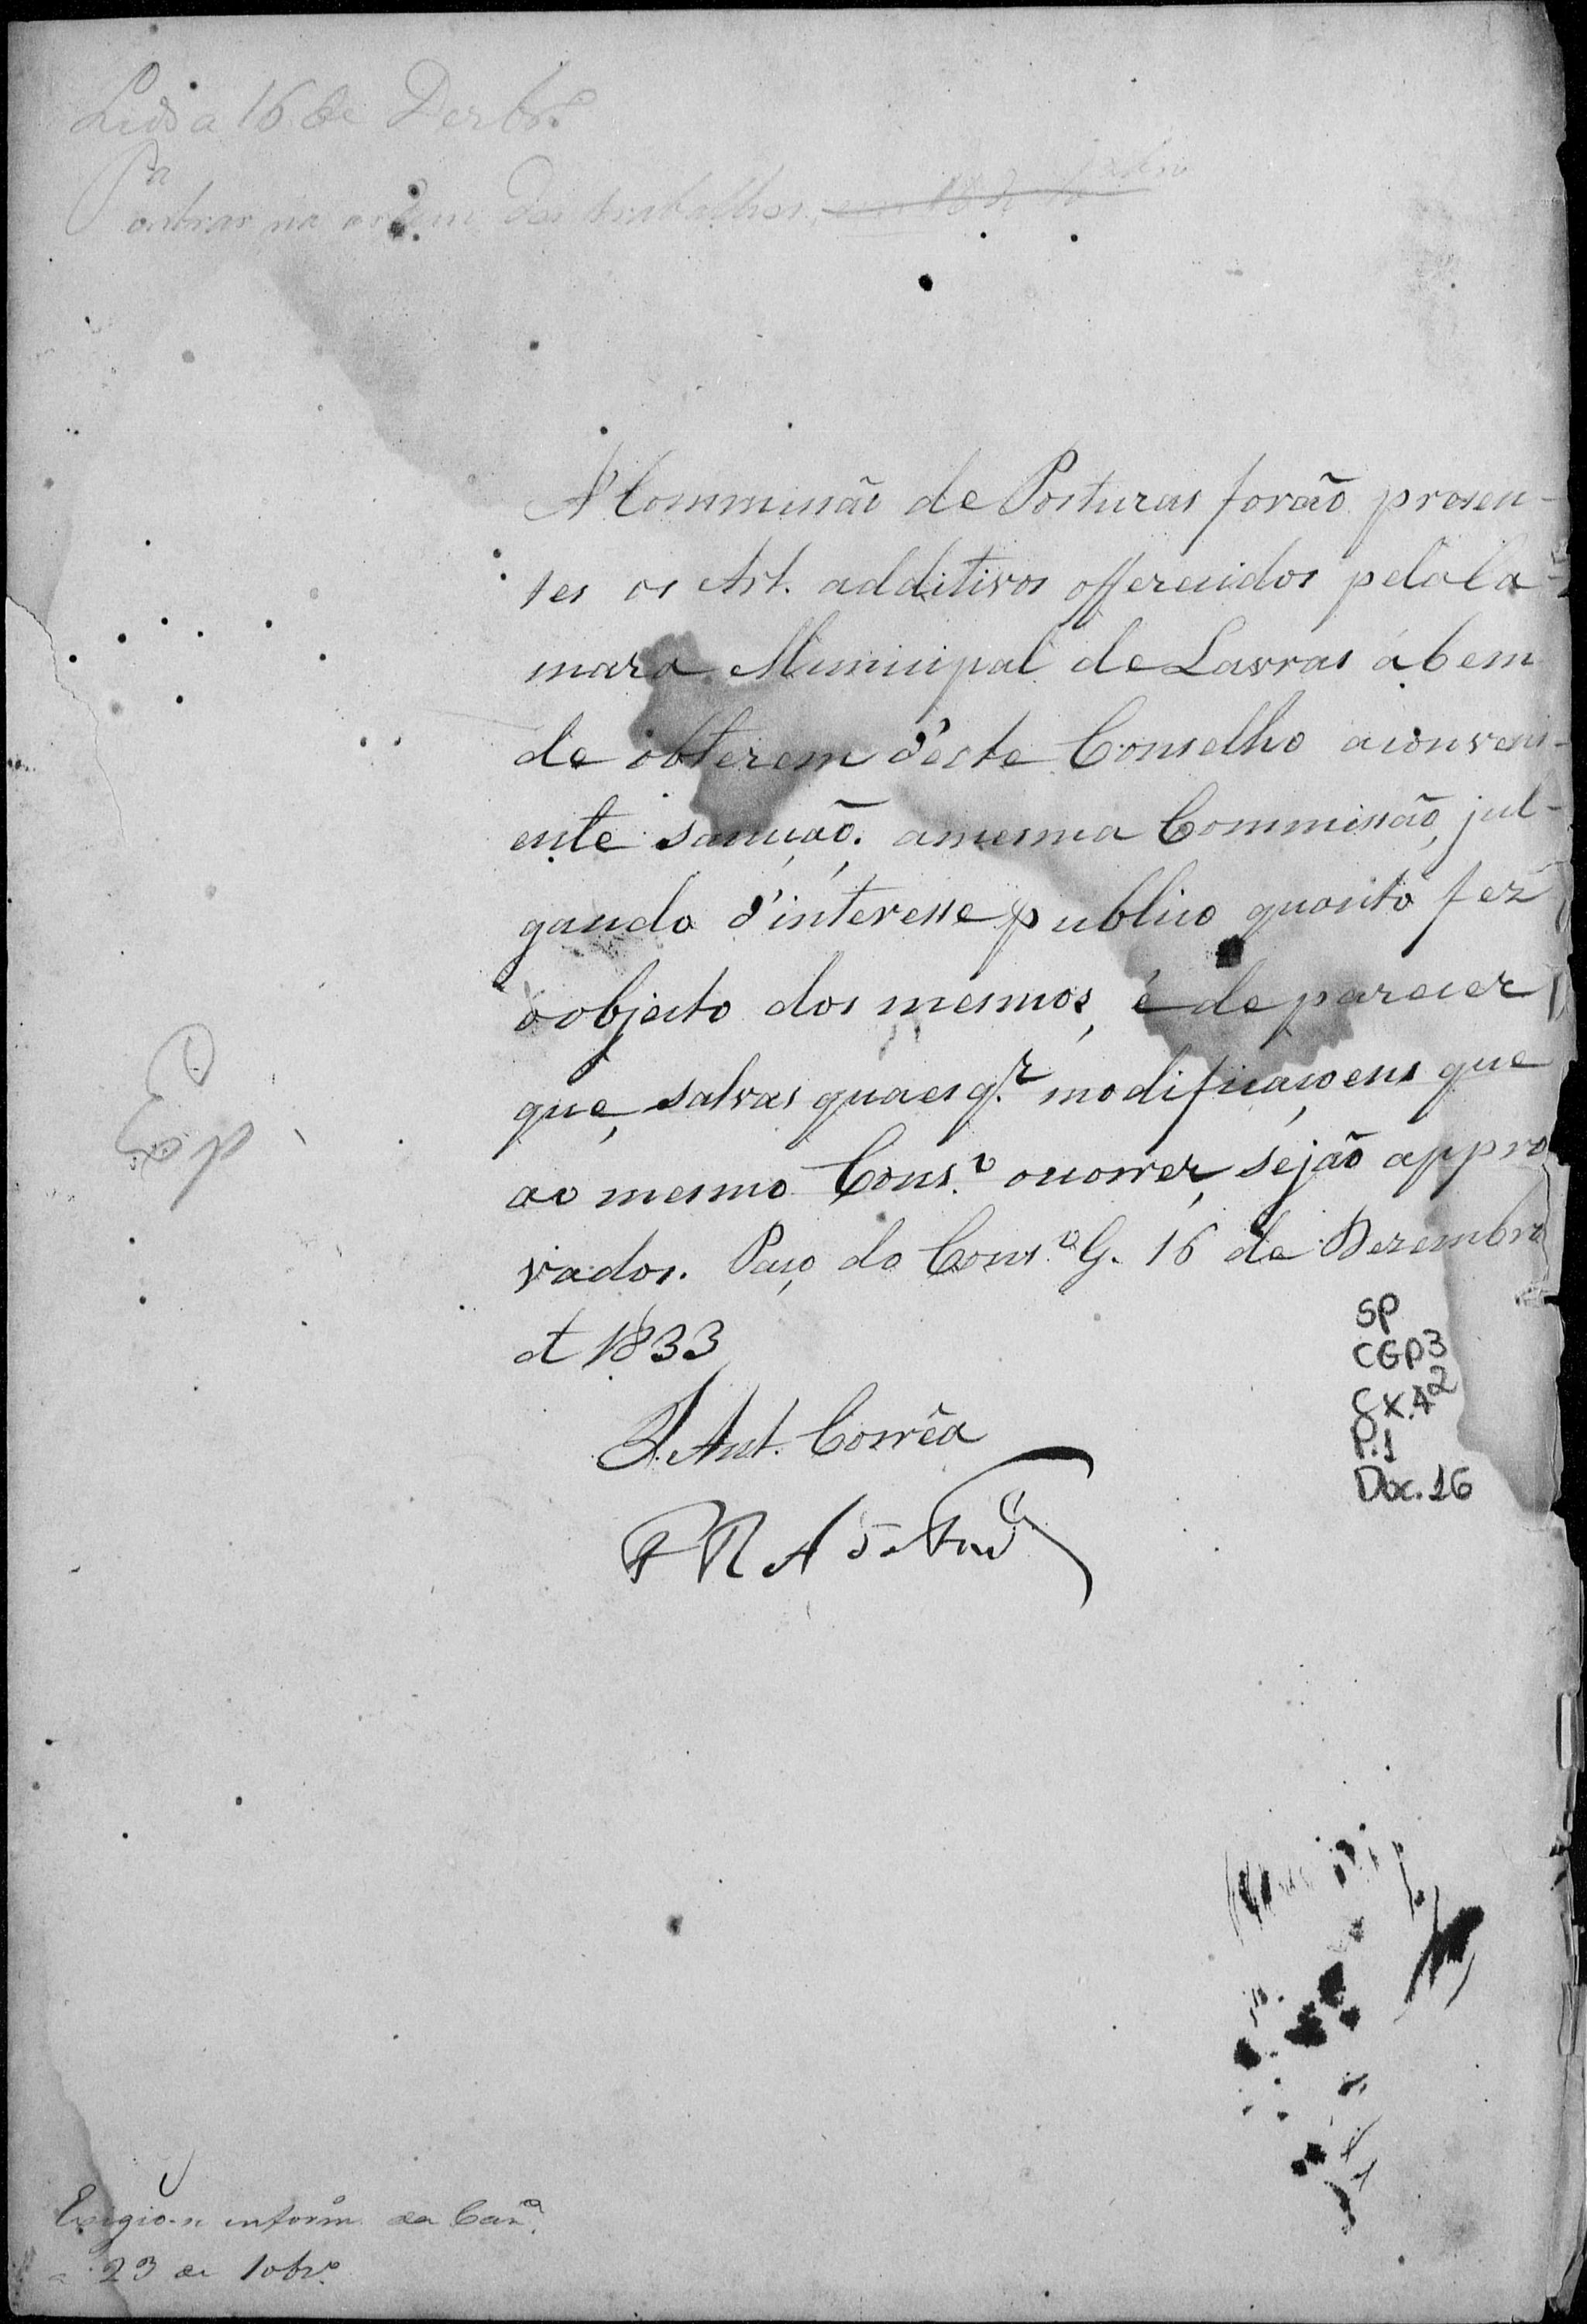 Lida 16 de Dezbr.º
P.ª entrar na ordem dos trabalhos
A' Commissão de Posturas forão presen-
tes os Art. additivos offerecidos pela Ca-
mara Municipal de Lavras a bem
de obterem d'este Conselho a conveni-
ente sancção. a mesma Commissão, jul-
gando d'interesse publico quanto fez
o objecto dos mesmos, é de parecer
que, salvas quaesq.r modificaçoens que
ao mesmo Cons.º ocorrer, sejão appro
vados. Paço do Cons.º G. 16 de Dezembro
d 1833
J. Ant. Corrêa
SP
CGP3
CX.42
P.1
Doc.16
Exigio-se inform. da Cam.ª
a 23 de 10br.º